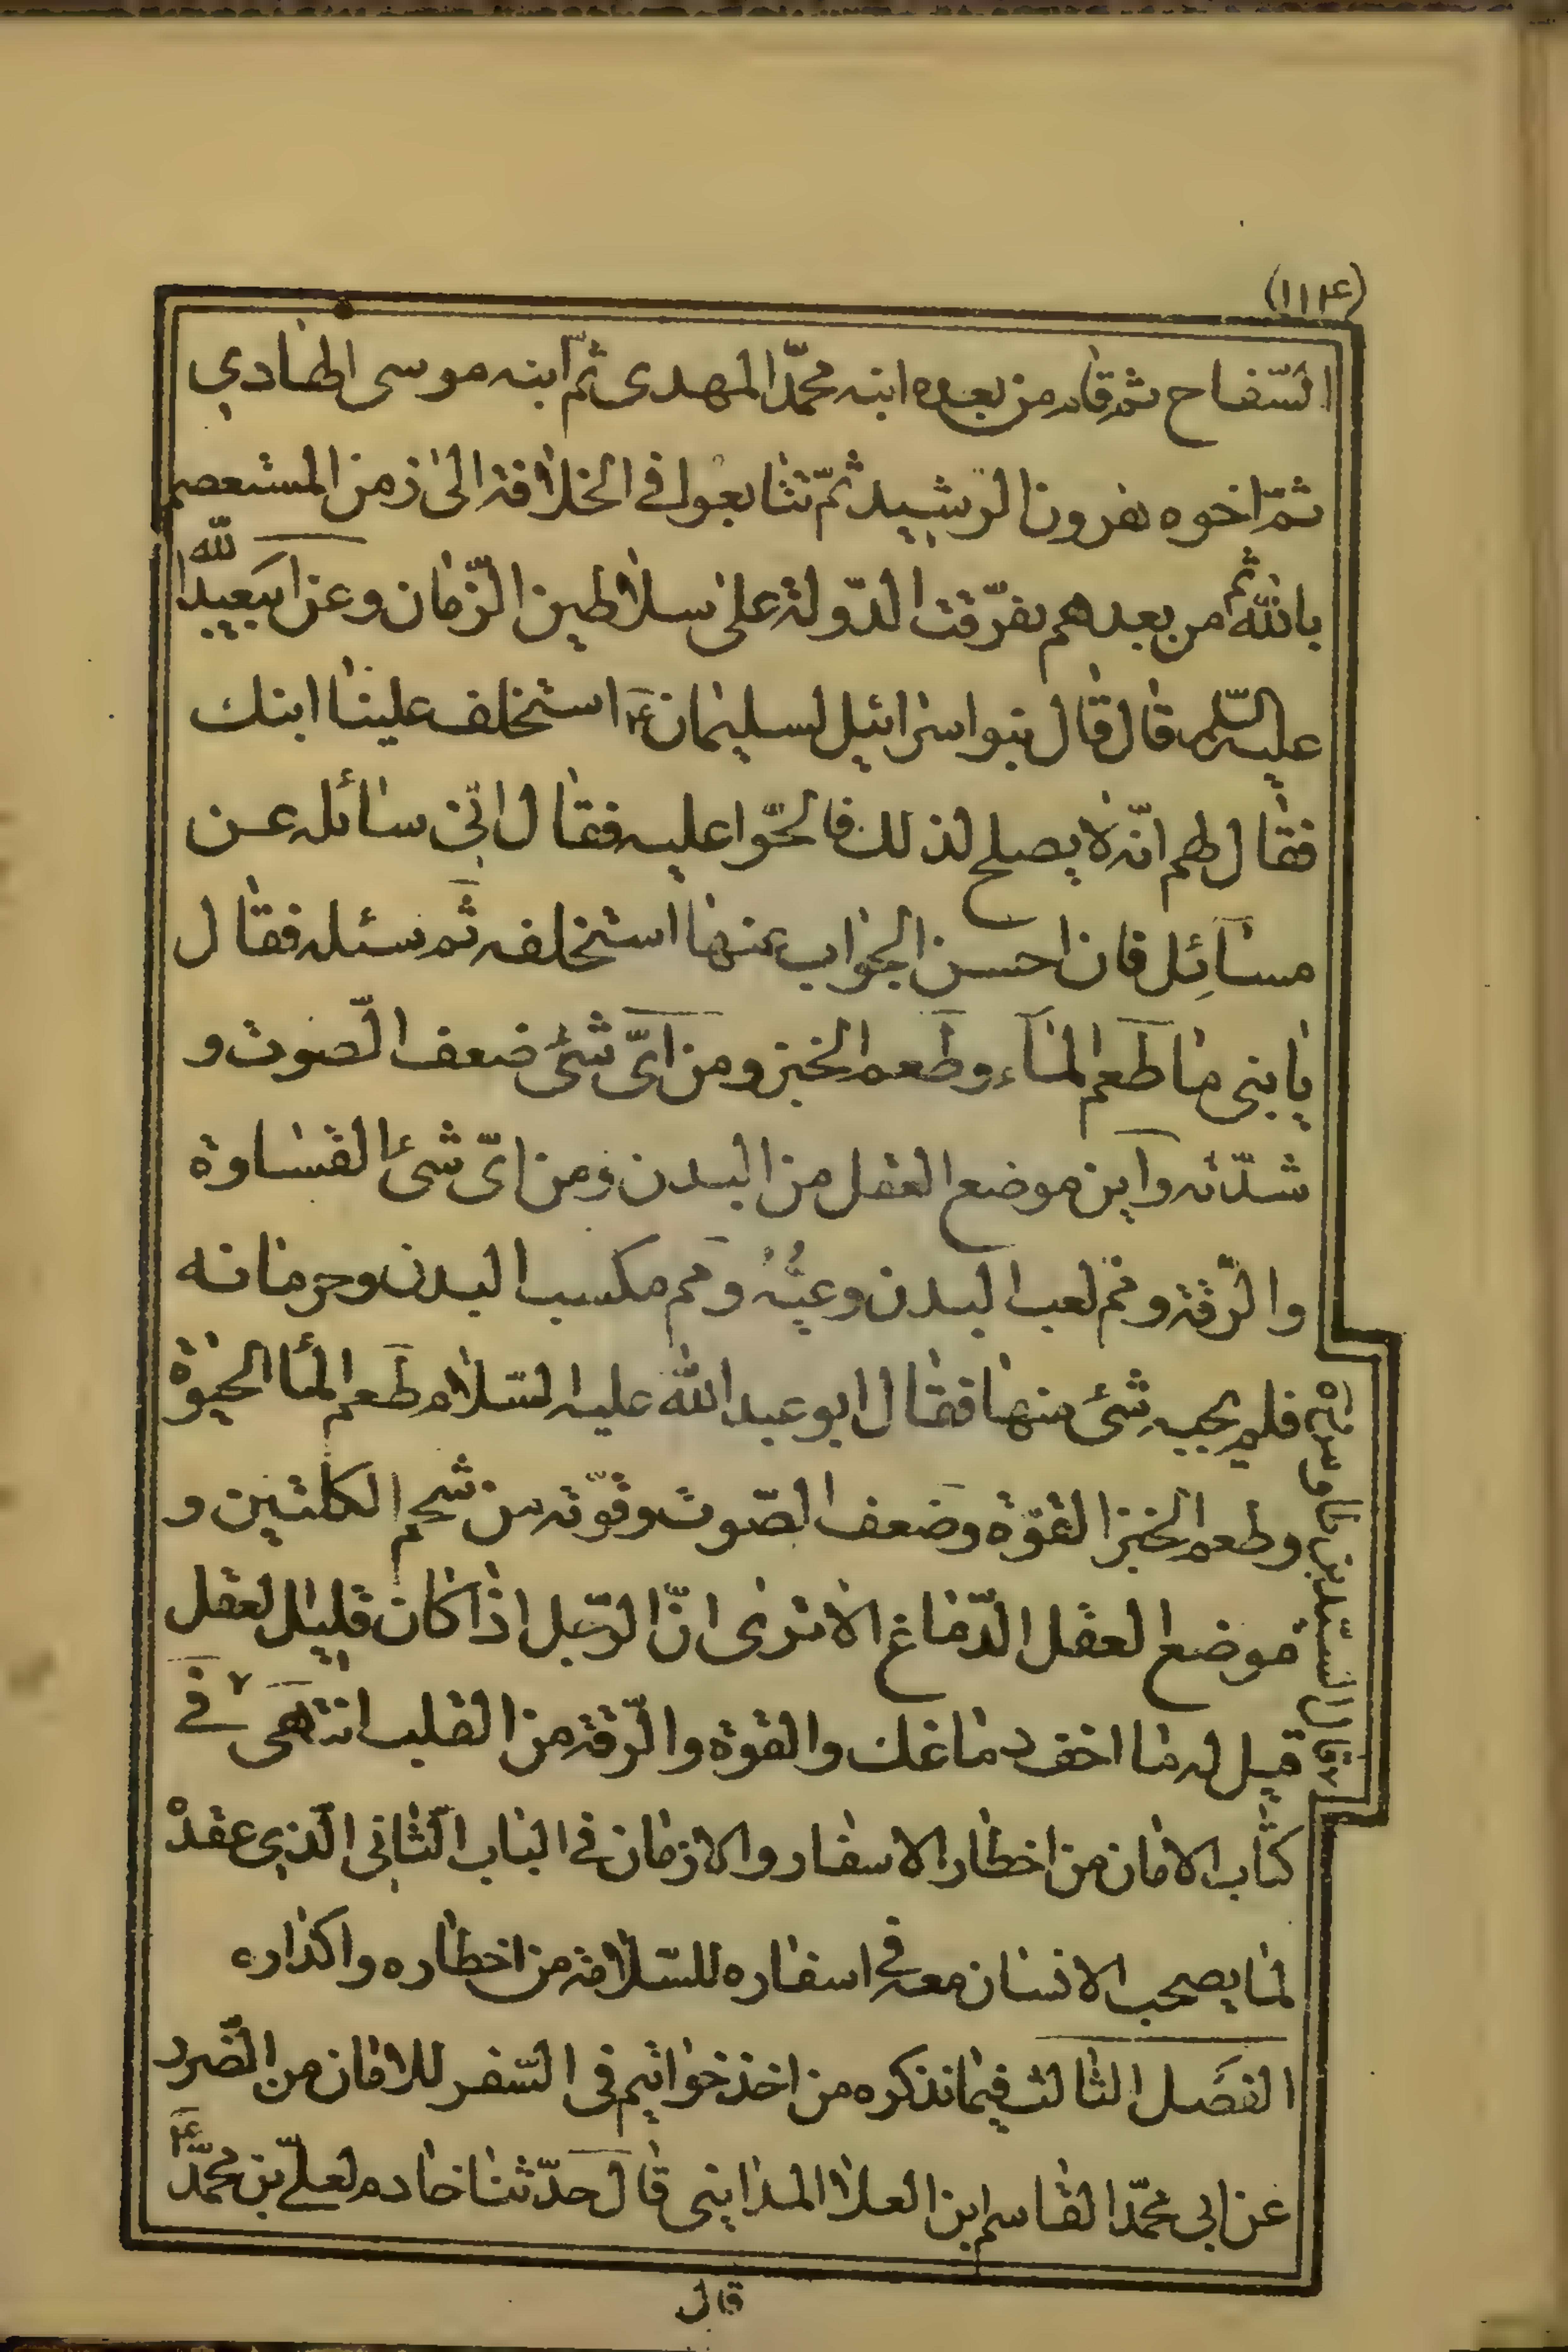 (١١٤)
السّفاح ثم قام من بعده ابنه محمّد المهدى ثمّ ابنه موسى الهادي
ثمّ اخوه هرون الرشيد ثمّ تتابعوا فى الخلافة الى زمن المستعصم
بالله ثم من بعدهم تفرّقت الدّولة على سلاطين الزّمان وعن ابيعبد الله
عليه السّلم قال قال بنو اسرائيل لسليمان ع استخلف علينا ابنك
فقال لهم انّه لا يصلح لذلك فالحّوا عليه فقال انّى سائله عن
مسائل فان احسن الجواب عنها استخلفه ثم سئله فقال
يا بنى ما طعم الماء وطعم الخبز ومن اىّ شئ ضعف الصّوت و
شدّته واين موضع العقل من البدن ومن اىّ شئ القساوة
والرّقة وممّ لعب البدن وعيّه ومم مكسب البدن وحرمانه
فلم يجبه شئ منها فقال ابو عبد الله عليه السّلام طعم الماء الحيوة
وطعم الخبز القوّة وضعف الصّوت وقوّته من شحم الكلتين و
موضع العقل الدّماغ الا ترى انّ الرّجل اذا كان قليل العقل
قيل له ما اخف دماغك والقوة والرّقة من القلب انتهى ٧ فى
كتاب الامان من اخطار الاسفار والازمان فى الباب الثّانى الّذي عقده
لما يصحب الانسان معه فى اسفاره للسّلامة من اخطاره واكداره
الفصل الثالث فيما نذكره من اخذ خواتيم فى السّفر للامان من الضّرر
عن ابى محمّد القاسم ابن العلا المداينى قال حدّثنا خادم لعلىّ بن محمّد ع
٧ قال السيّد بن طاوس ره
قال